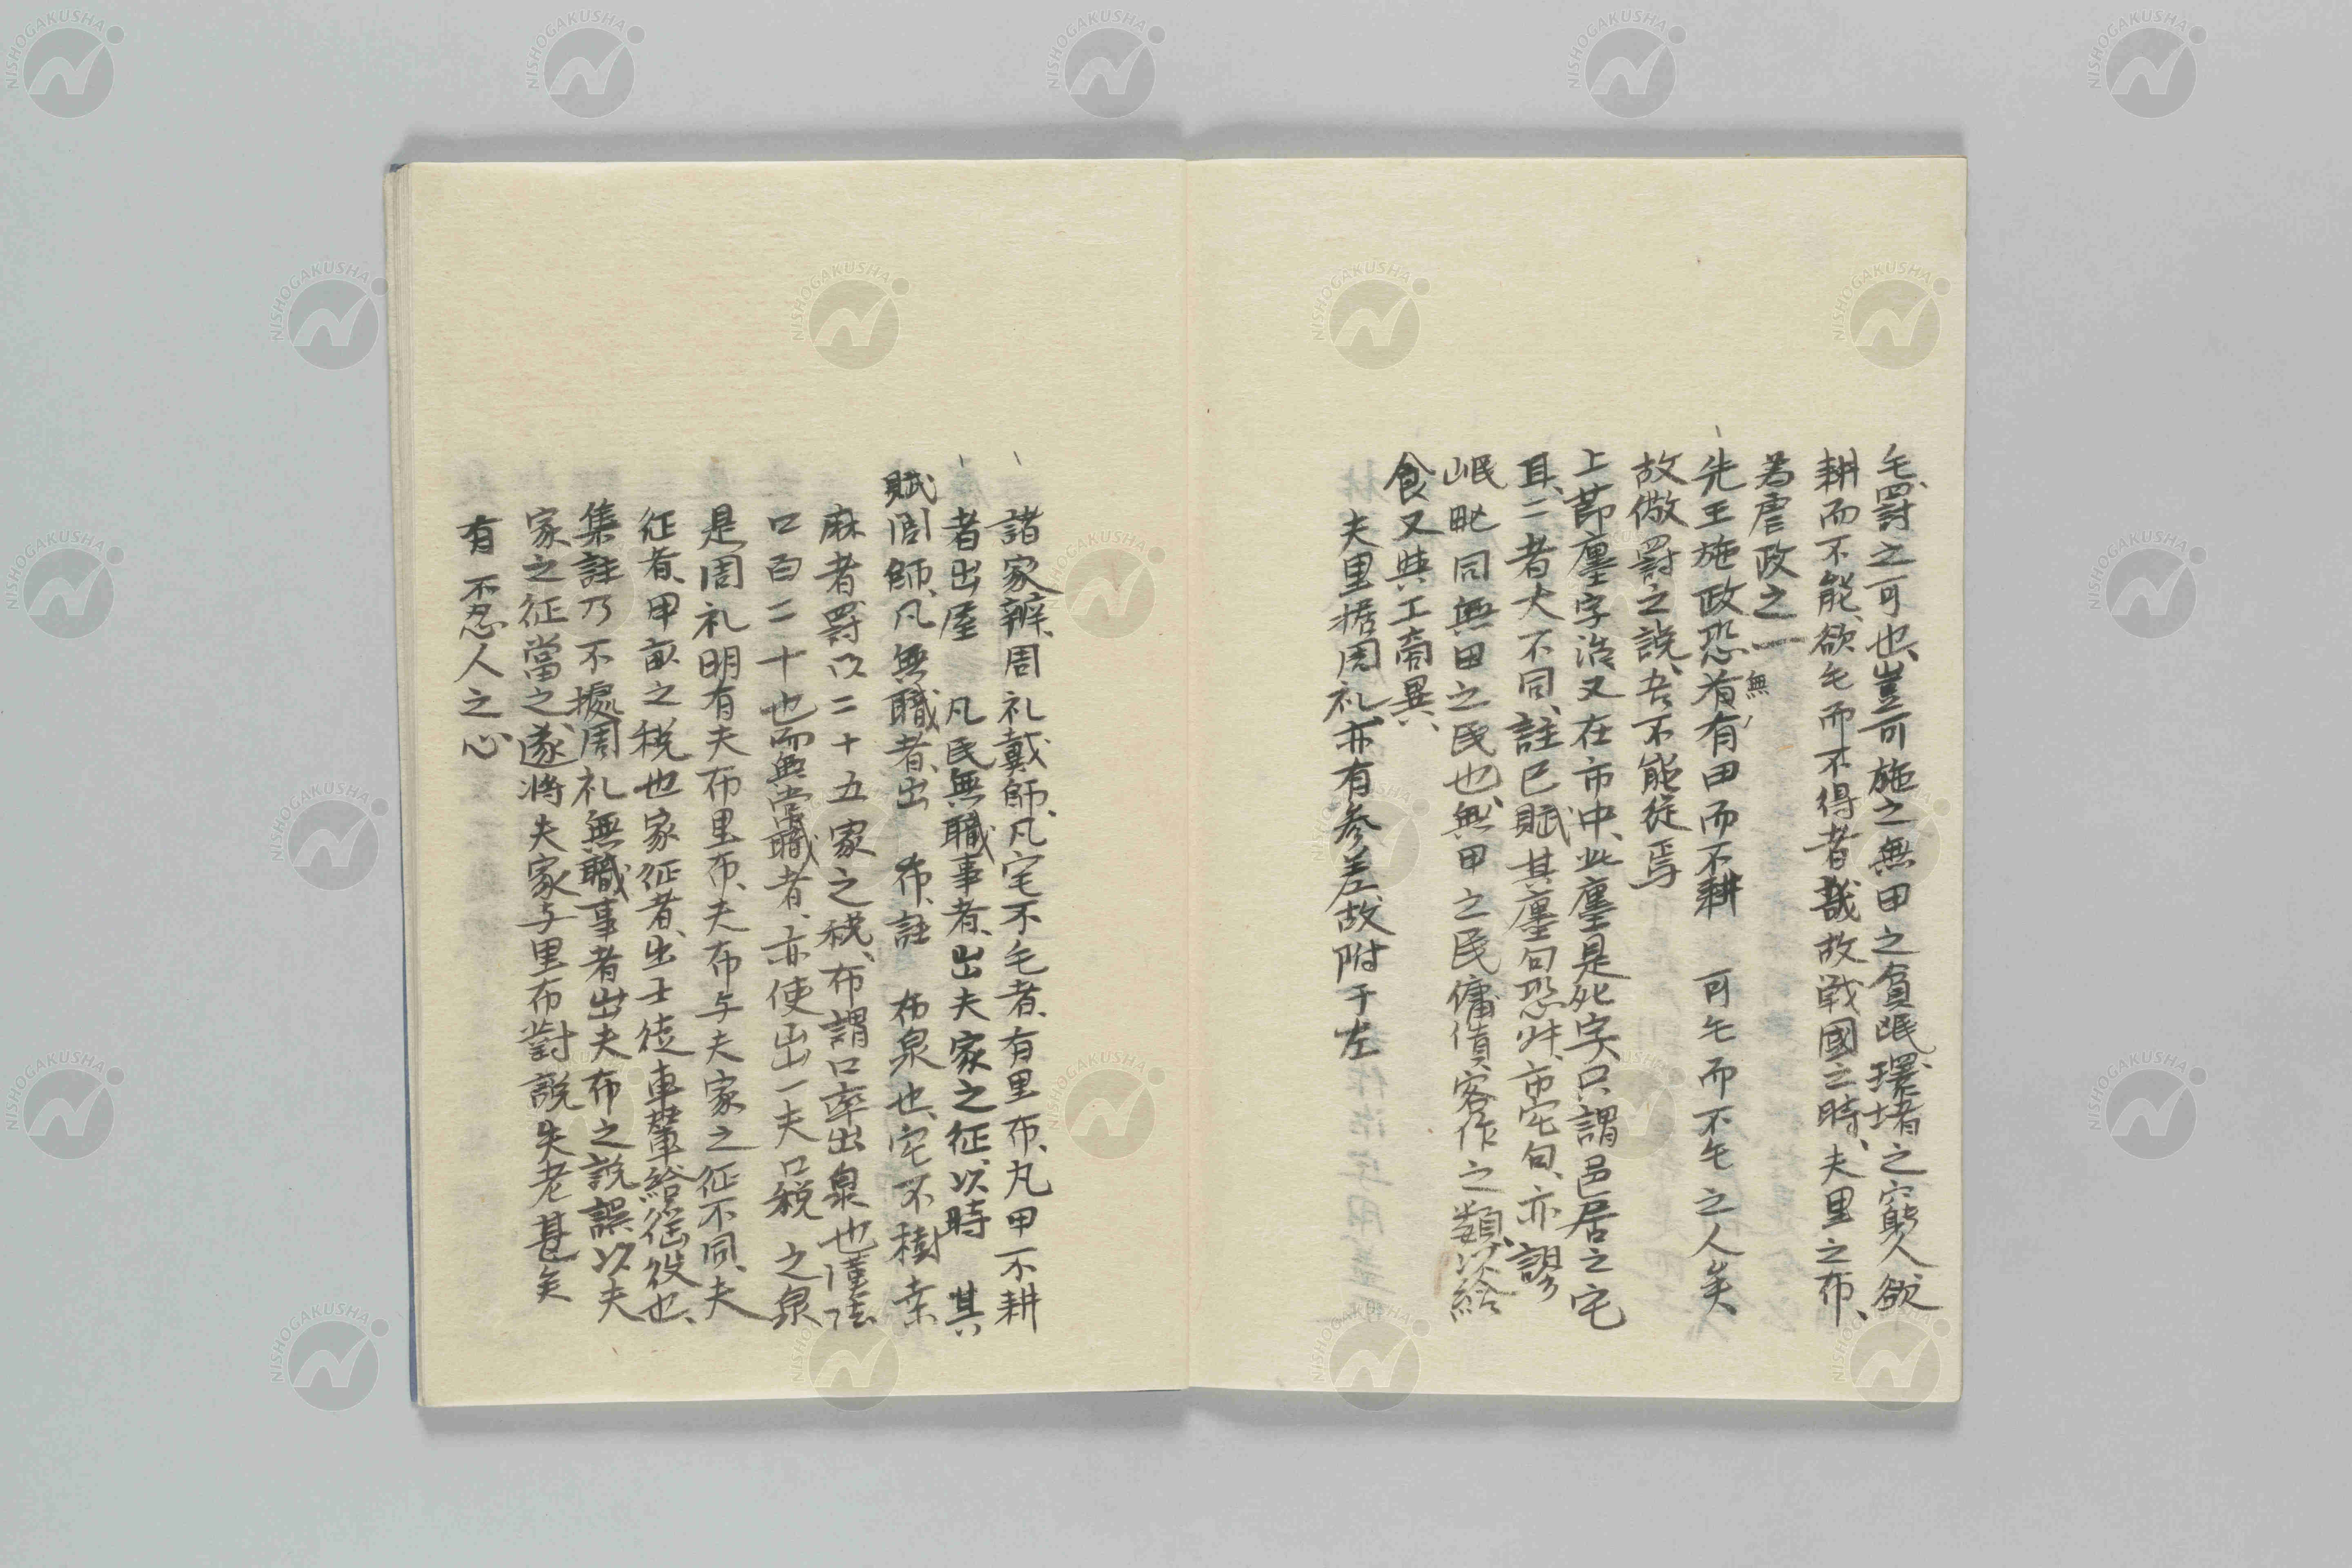 毛、罸之可也、豈可施之無田之貧氓環堵之窮人、欲
耕而不能、欲毛而不得者哉、故戦國之時、夫里之布、
為虐政之一
先王施政、恐有無有田而不耕　可毛而不毛之人矣、
故倣罸之説、吾不能従焉
上節廛字治又在市中、此廛是死字、只謂邑居之宅
耳、二者大不同、註已賦其廛句、恐𠦑市宅句、亦謬
岷氓同無田之民也、無田之民傭債客作之類、以給
食又與工商異、
夫里據周礼、亦有参差、故附于左
諸家辨、周礼載師、凡宅不毛者、有里布、凡田不耕
者出屋　凡民無職事者、出夫家之征、以時　其
賦閭師、凡無職者、出　布、註　布泉也、宅不樹桒
麻者罸以二十五家之税、布謂口率出泉也漢法
口百二十也而無常職者、亦使出一夫口税之泉
是周礼明有夫布里布、夫布与夫家之征不同、夫
征者、田畝之税也家征者、出士徒車輦給徭役也、
集註乃不據周礼無職事者出夫布之説誤以夫
家之征當之、遂将夫家与里布對説失老甚矣
有不忍人之心
NISHOGAKUSHA